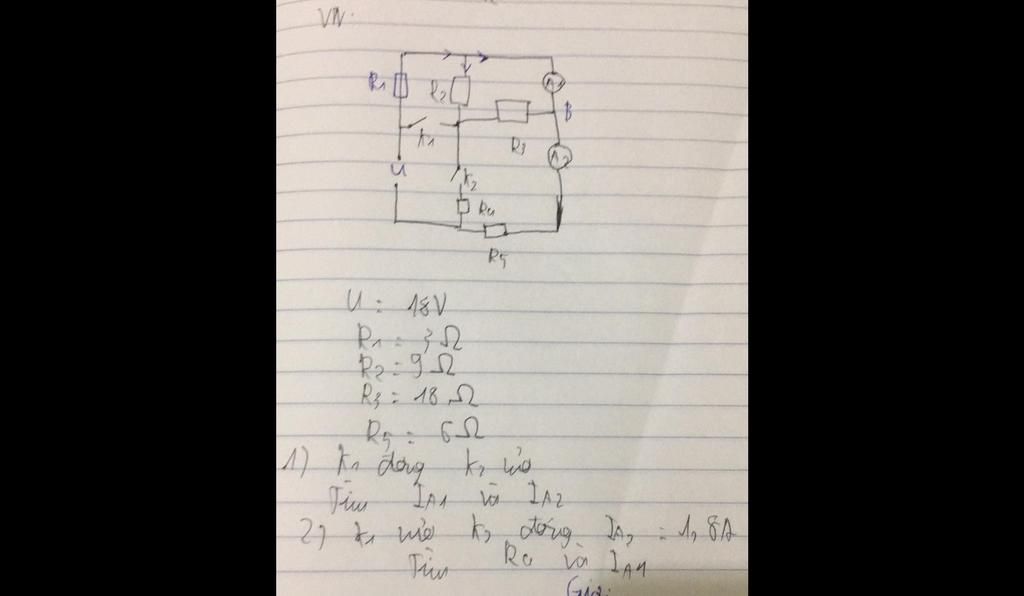 VN.
R1
R2
A1
B
R3
K1
A2
U
K2
R4
R5
U = 18V
R1 = 3Ω
R2 = 9Ω
R3 = 18Ω
R5 = 6Ω
1) K1 đóng K2 mở
Tìm IA1 và IA2
2) K1 mở K2 đóng IA2 = 1,8A
Tìm R4 và IA1